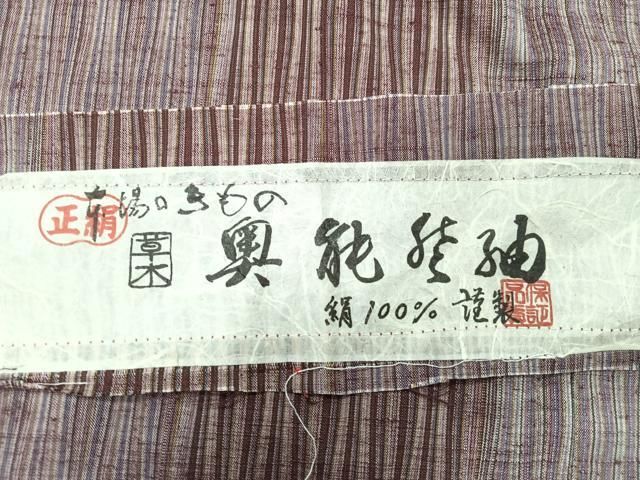 本場のきもの
正絹
草木
奥能登紬
絹100% 謹製